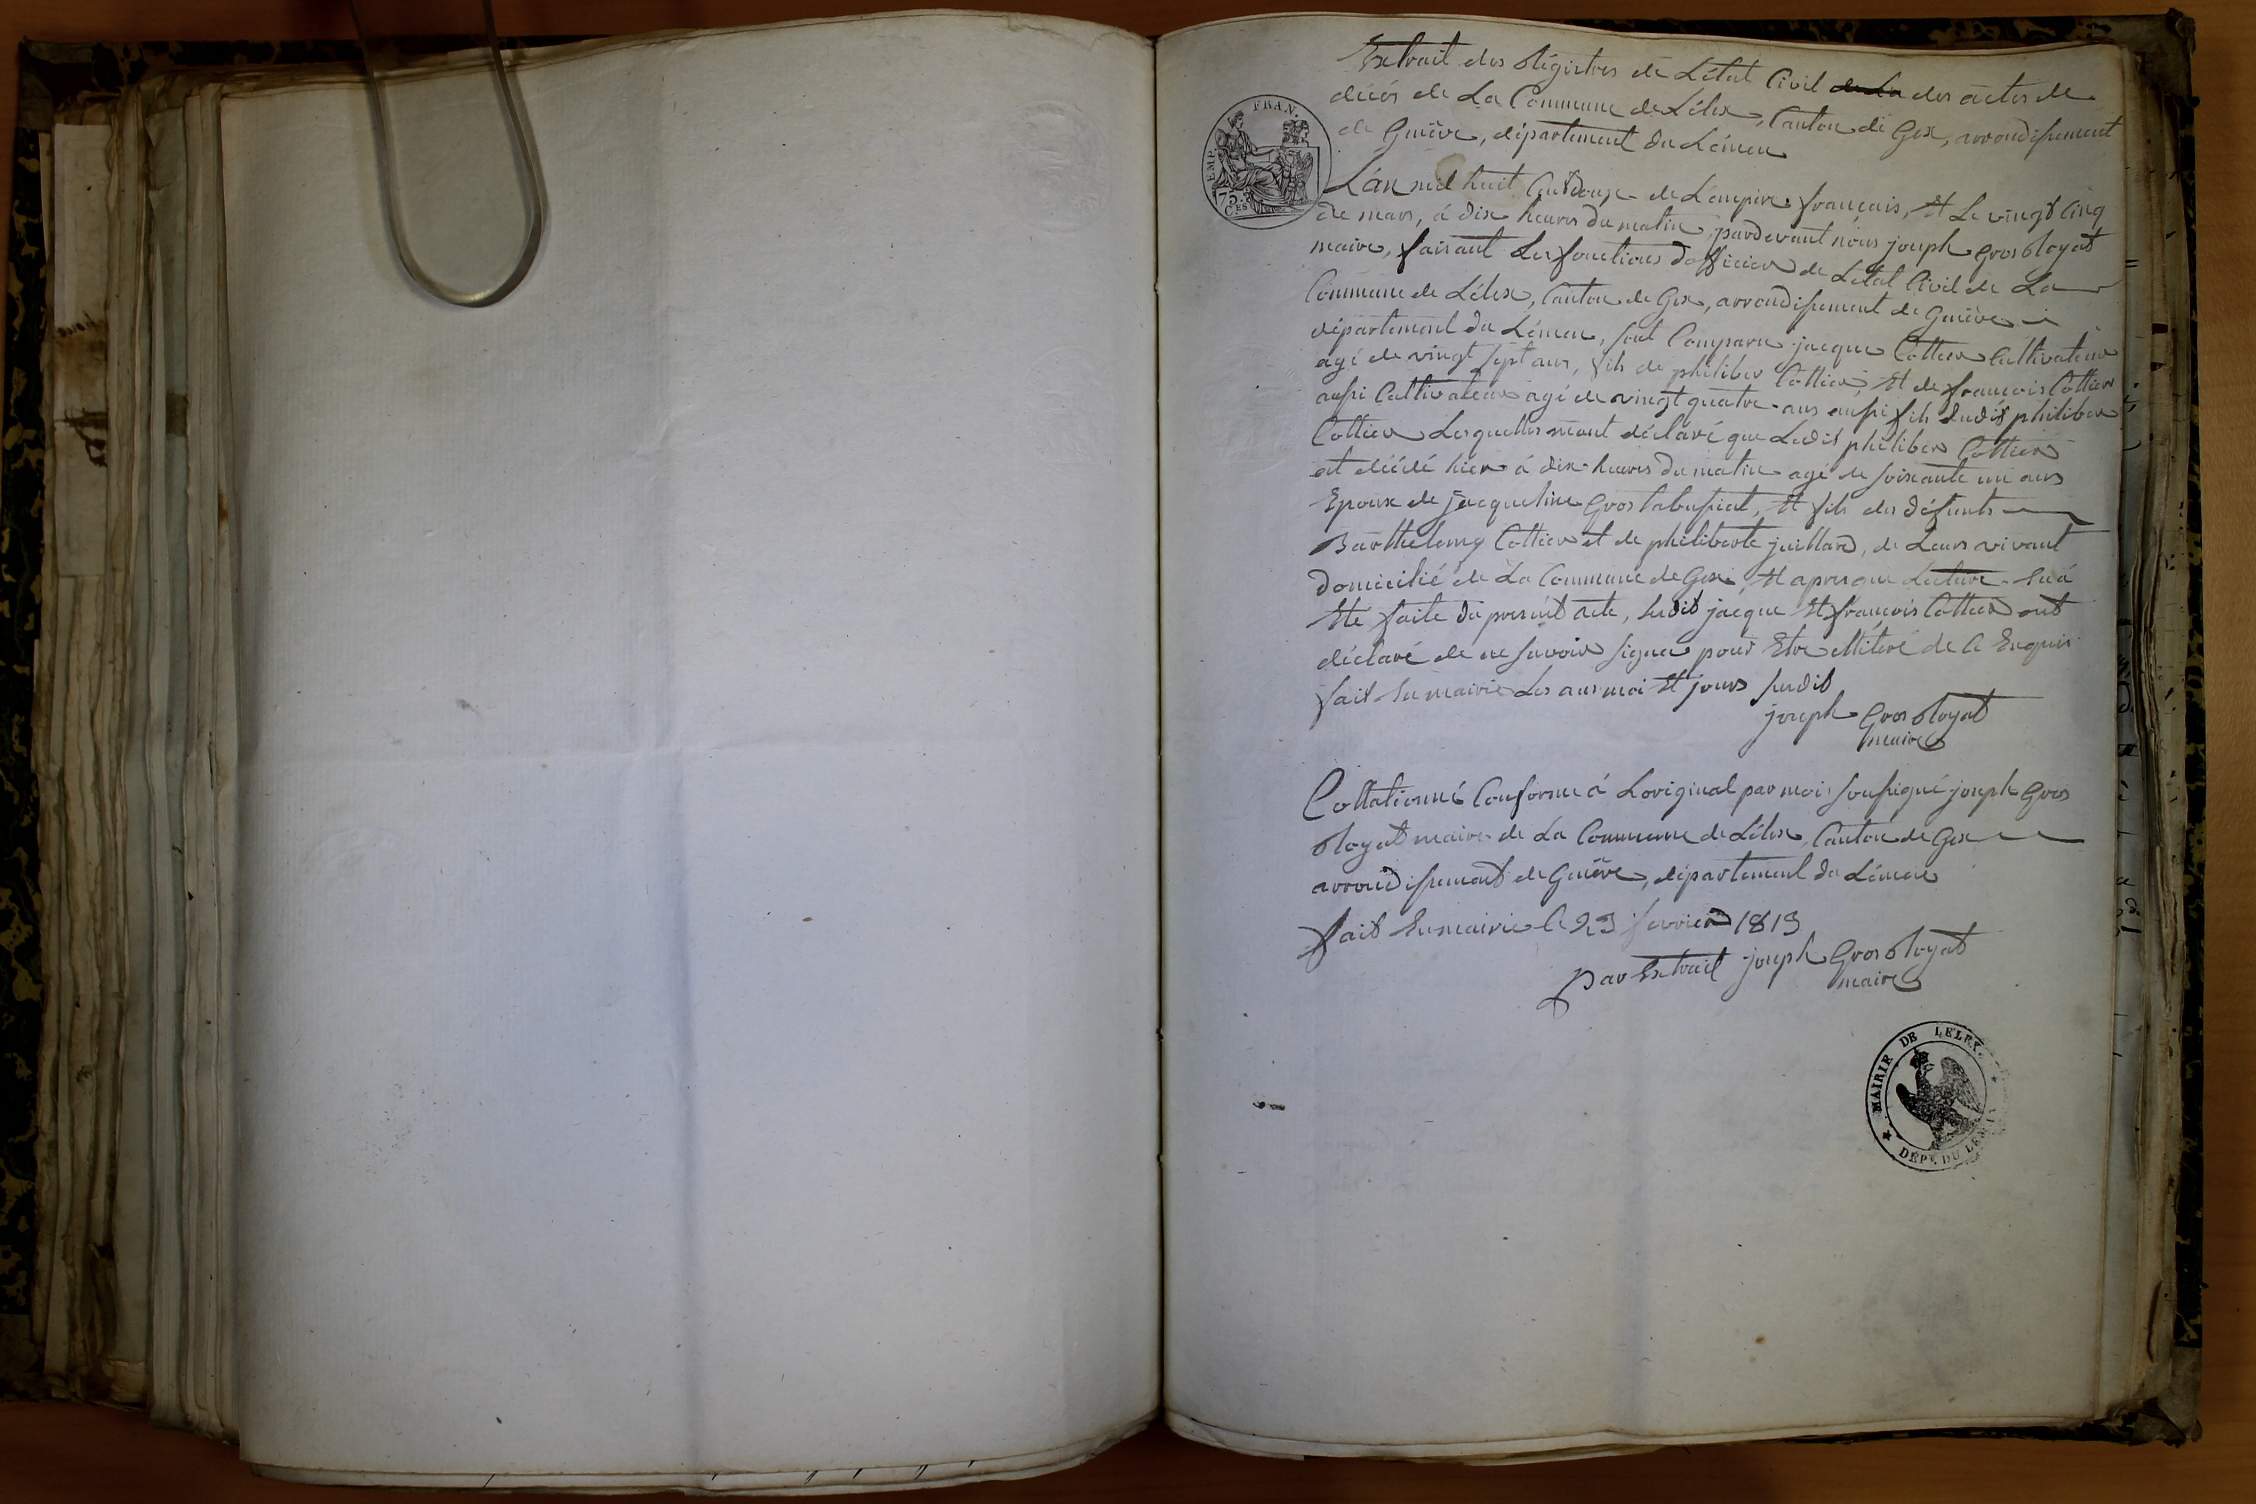 Extrait des Régistres de L'état Civil de La des actes de
décés de La Commune de Lélex, Canton de Gex, arrondissement
de Genève, département du Léman
EMP. FRAN.
75.
C.ES
L'an mil huit Cent douze de L'empire français, Et Le vingt Cinq
de mars, à dix heures du matin, pardevant nous joseph Gros Royat
maire, faisant Les fonctions d'officier de L'état Civil de La
Commune de Lélex, Canton de Gex, arrondissement de Genève
département du Léman, sont Comparu jacque Cottier Cultivateur
agé de vingt sept ans, fils de philiber Cottier, Et de françois Cottier
aussi Cultivateur agé de vingt quatre ans aussi fils dudit philiber
Cottier Lesquelles m'ont déclaré que Ledit philiber Cottier
est décédé hier à dix heures du matin agé de soixante un ans
Epoux de jacqueline Gros Et fils des défunts
Barthelemy Cottier et de philiberte juillard, de Leurs vivant
domicilié de La Commune de Gex, Et apres que Lecture En à
Eté faite du present acte, Ledit jacque Et françois Cottier ont
déclaré de ne savoir signer pour Etre de Ce Enquis
fait En mairie Les ans moi Et jours susdit
joseph Gros Royat
maire
Collationné Conforme á L'original par moi soussigné joseph Gros
Royat maire de La Commune de Lélex, Canton de Gex
arrondissement de Genève, département du Léman
fait En mairie le 23 fevrier 1813
par Extrait joseph Gros Royat
maire
MAIRIE DE LELEX.
DEPT. DU LEMAN